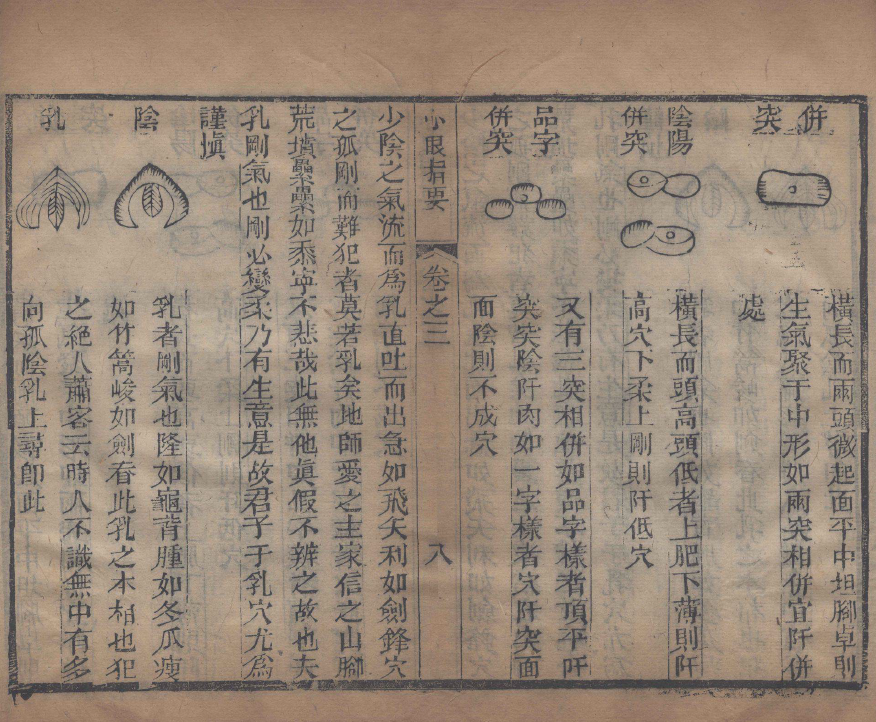 併突
橫長而兩頭微起面平中坦腳卓則
生氣聚于中形如兩突相併宜阡併
處
陰陽
併突
橫長而頭高頭低者上肥下薄則阡
高穴下柔上剛則阡低穴
品字
併突
又有三突相併如品字樣者頂平阡
突突陰阡肉如一字樣者穴阡突面
面陰則不成穴
小眼指要
卷之三
八
少陰之氣流而爲乳直吐而出急如飛矢利如劍鋒穴
之孤剛而難犯者莫若乳矣地師愛之主家信之山腳
荒墳纍纍如黍寧不悲哉此無他眞假不辨之故也夫
乳剛氣也剛必變柔乃有生意是故君子于乳穴尤爲
謹愼
陰乳
乳者剛氣也隆如龜背腫如冬瓜瘦
如竹篙峻如劍脊此乳之本相也犯
之絕人蕭客云時人不識無中有多
向孤陰乳上尋卽此